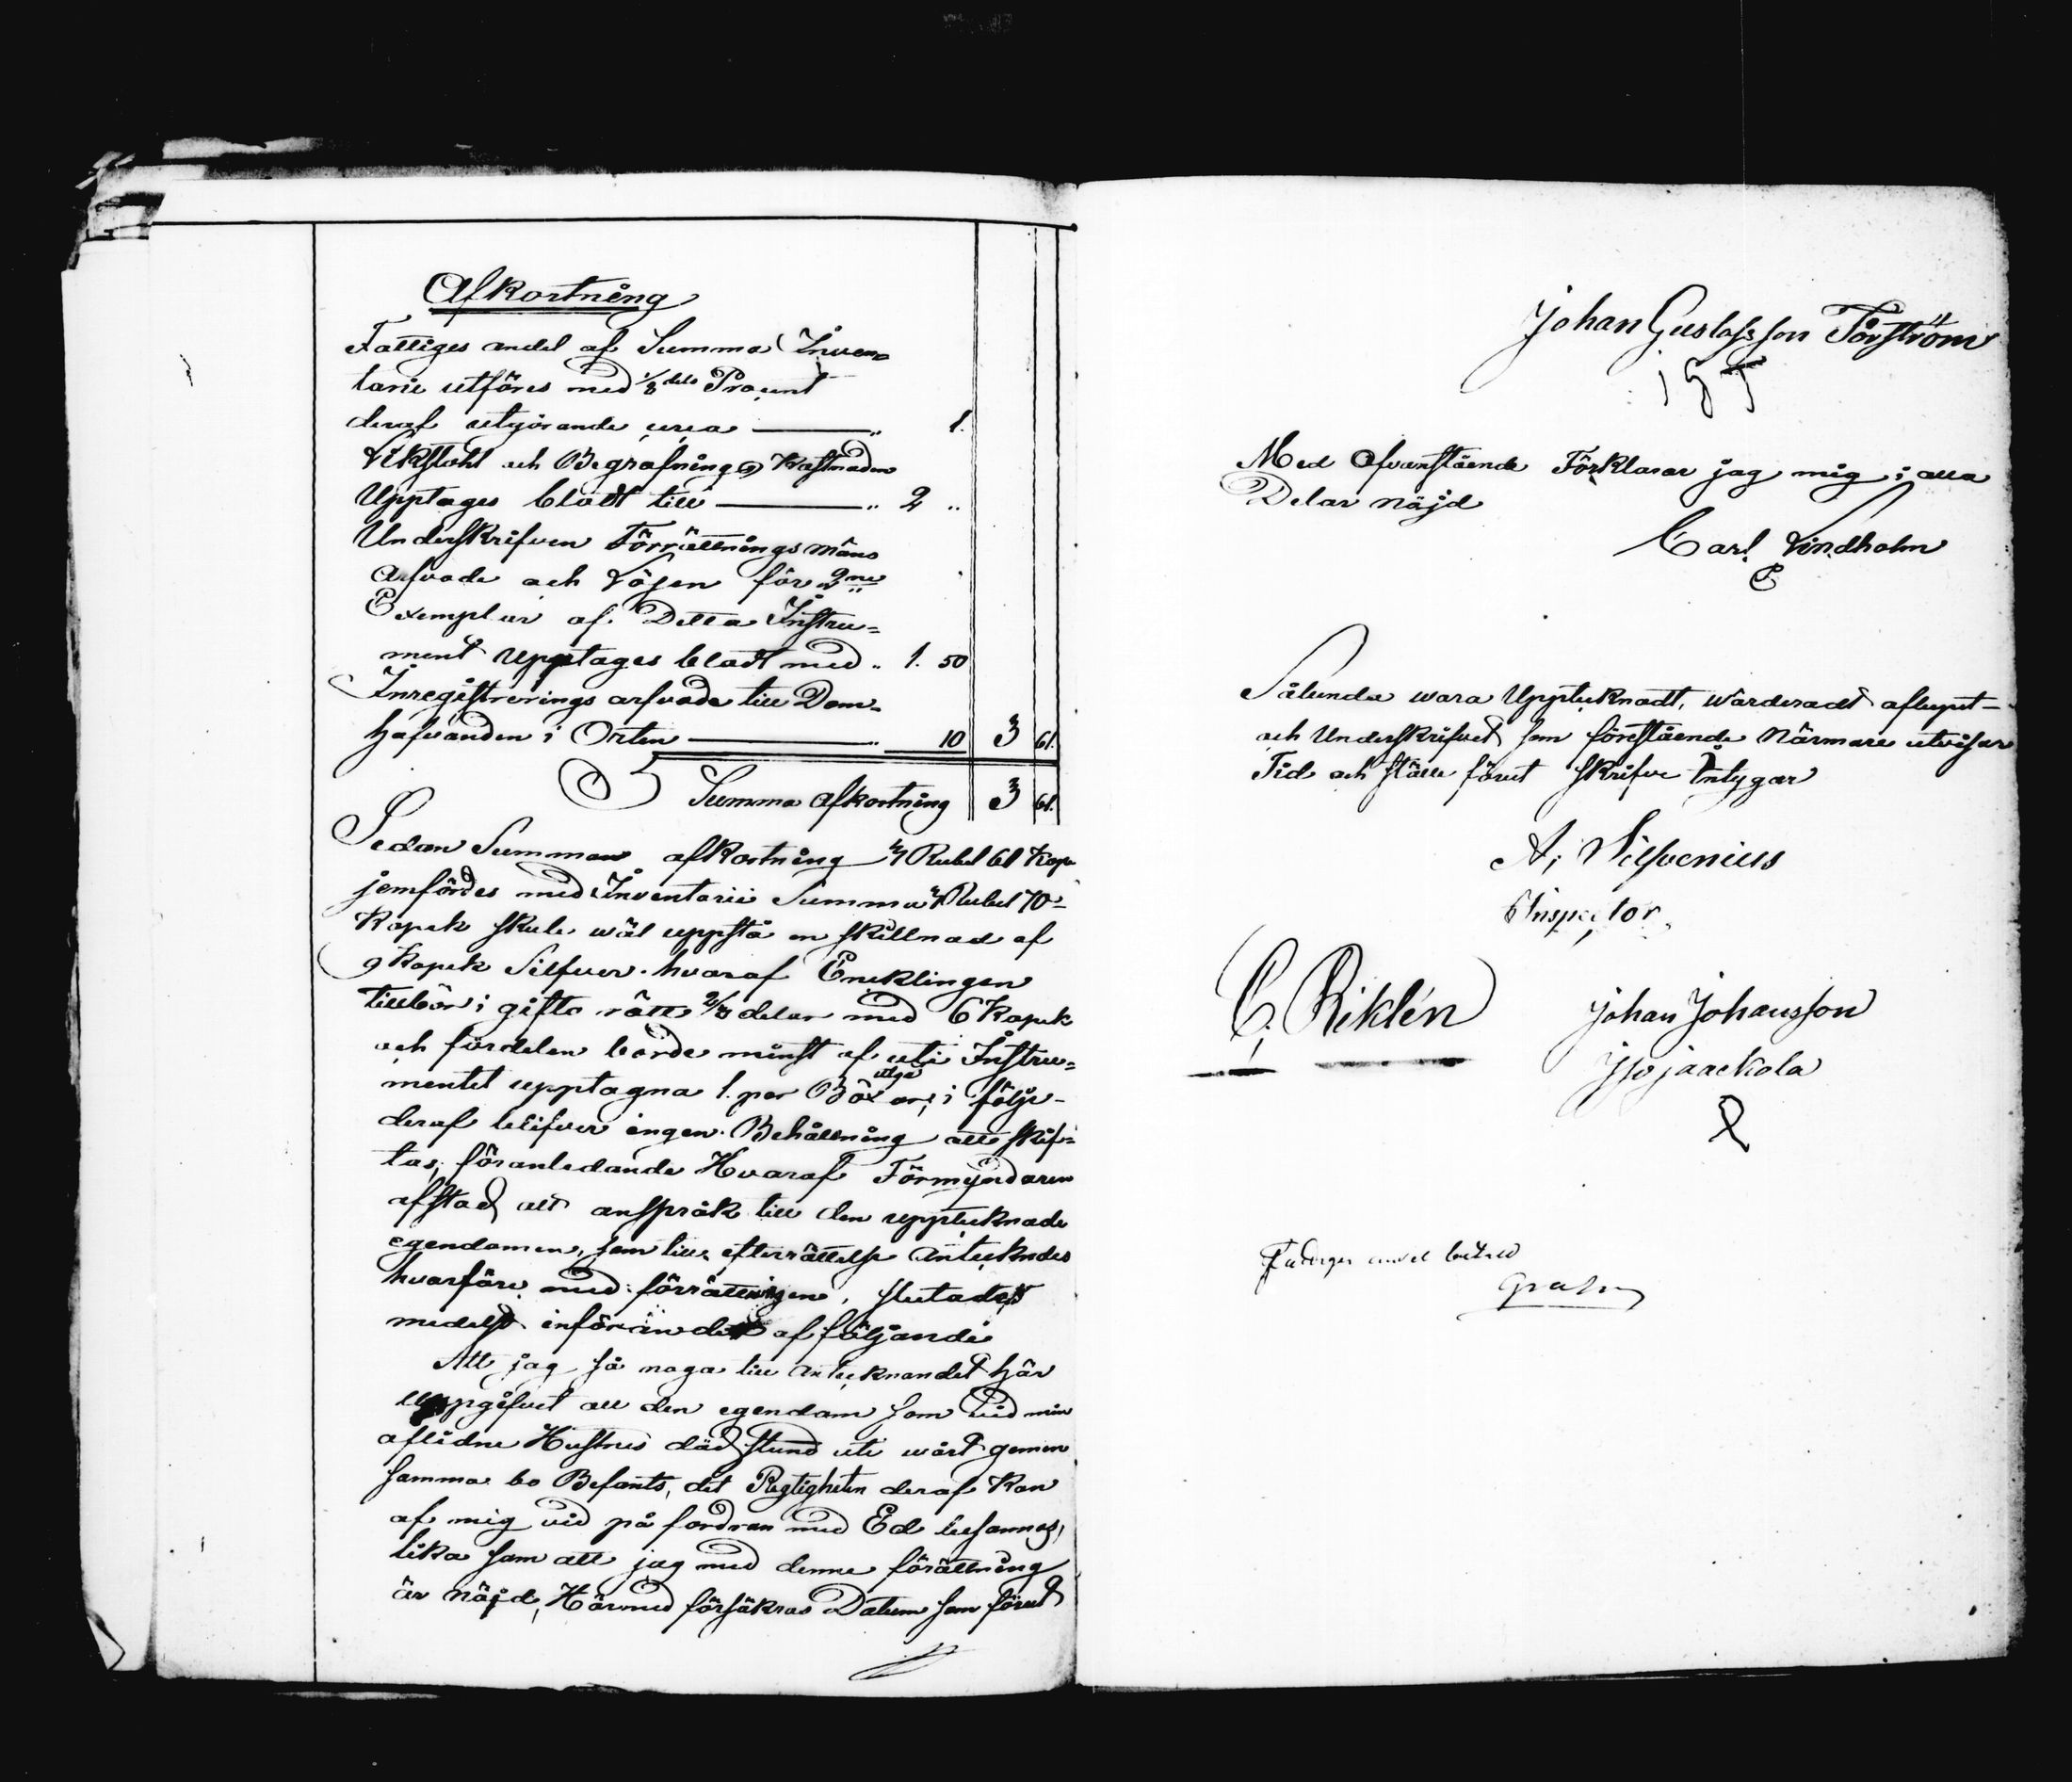 Afkortning
Fattiges andel af Summa Inven=
tarie utföres med 1/8 dels Procent
deraf utgörande circa — „ 1.
Likstohl och Begrafnings Kostnaden
Upptages blott till — „ 2 „
Underskrifven Förrättnings mans
Arfvode och Lösen för 2ne
Exemplar af Detta Instru=
ment upptages blott med „ 1. 50
Inregistrerings arfvode till Dom=
hafvanden i Orten — „ 10 3 61.
Summa Afkortning 3 61.
Sedan Summan afkortning 3 Rubel 61 Kop
jemfördes med Inventarii Summa 3 Rubel 70=
Kopek skule wäl uppstå en skillnad af
9 Kopek Silfver. hvaraf Encklingen
tillbör i gifto rätt 2/3 delar med 6 Kopek
och fördelen borde minst af uti Instru=
mentet upptagna 1. par Böxor; i följe-
deraf blifver ingen Behållning att skif=
tas, föranledande Hvaraf Förmyndaren
afstad allt anspråk till den upptecknade
egendomen, som till efterrättelse Antecknades
hvarföre med förrättningen, slutades
medelst införandet af följande
Att jag så noga till antecknandet här
uppgifvit all den egendom som vid min
aflidne Hustrus död stund uti wårt gemen
samma bo Befants, det Rigtigheten deraf Kan
af mig vid på fordran med Ed besannas,
lika som att jag med denne förättning
är nöjd, Härmed försäkras Datum som förut
Johan Gustafsson Forström
Med Ofvanstående Förklarar jag mig i alla
Delar nöjd
Carl Lindholm
Sålunda wara Upptecknadt, wärderadt aflupit-
och Underskrifvet som förestående Närmare utvisar
Tid och ställe förut skrifve Intygar
A; Silfvenius
Inspector
C. Riklén
Johan Johansson
Isojaackola
Fattiges andel betald